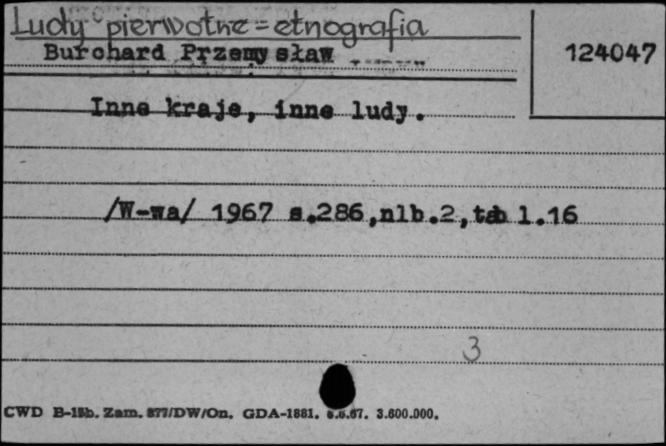 Ludy pierwotne = etnografia
Burchard Przemysław
124047
Inne kraje, inne ludy.
/W-wa/ 1967 s.286,nlb.2,tab l.16
3
CWD B-15b. Zam. 877/DW/On. GDA-1881. 5.6.67. 3.600.000.